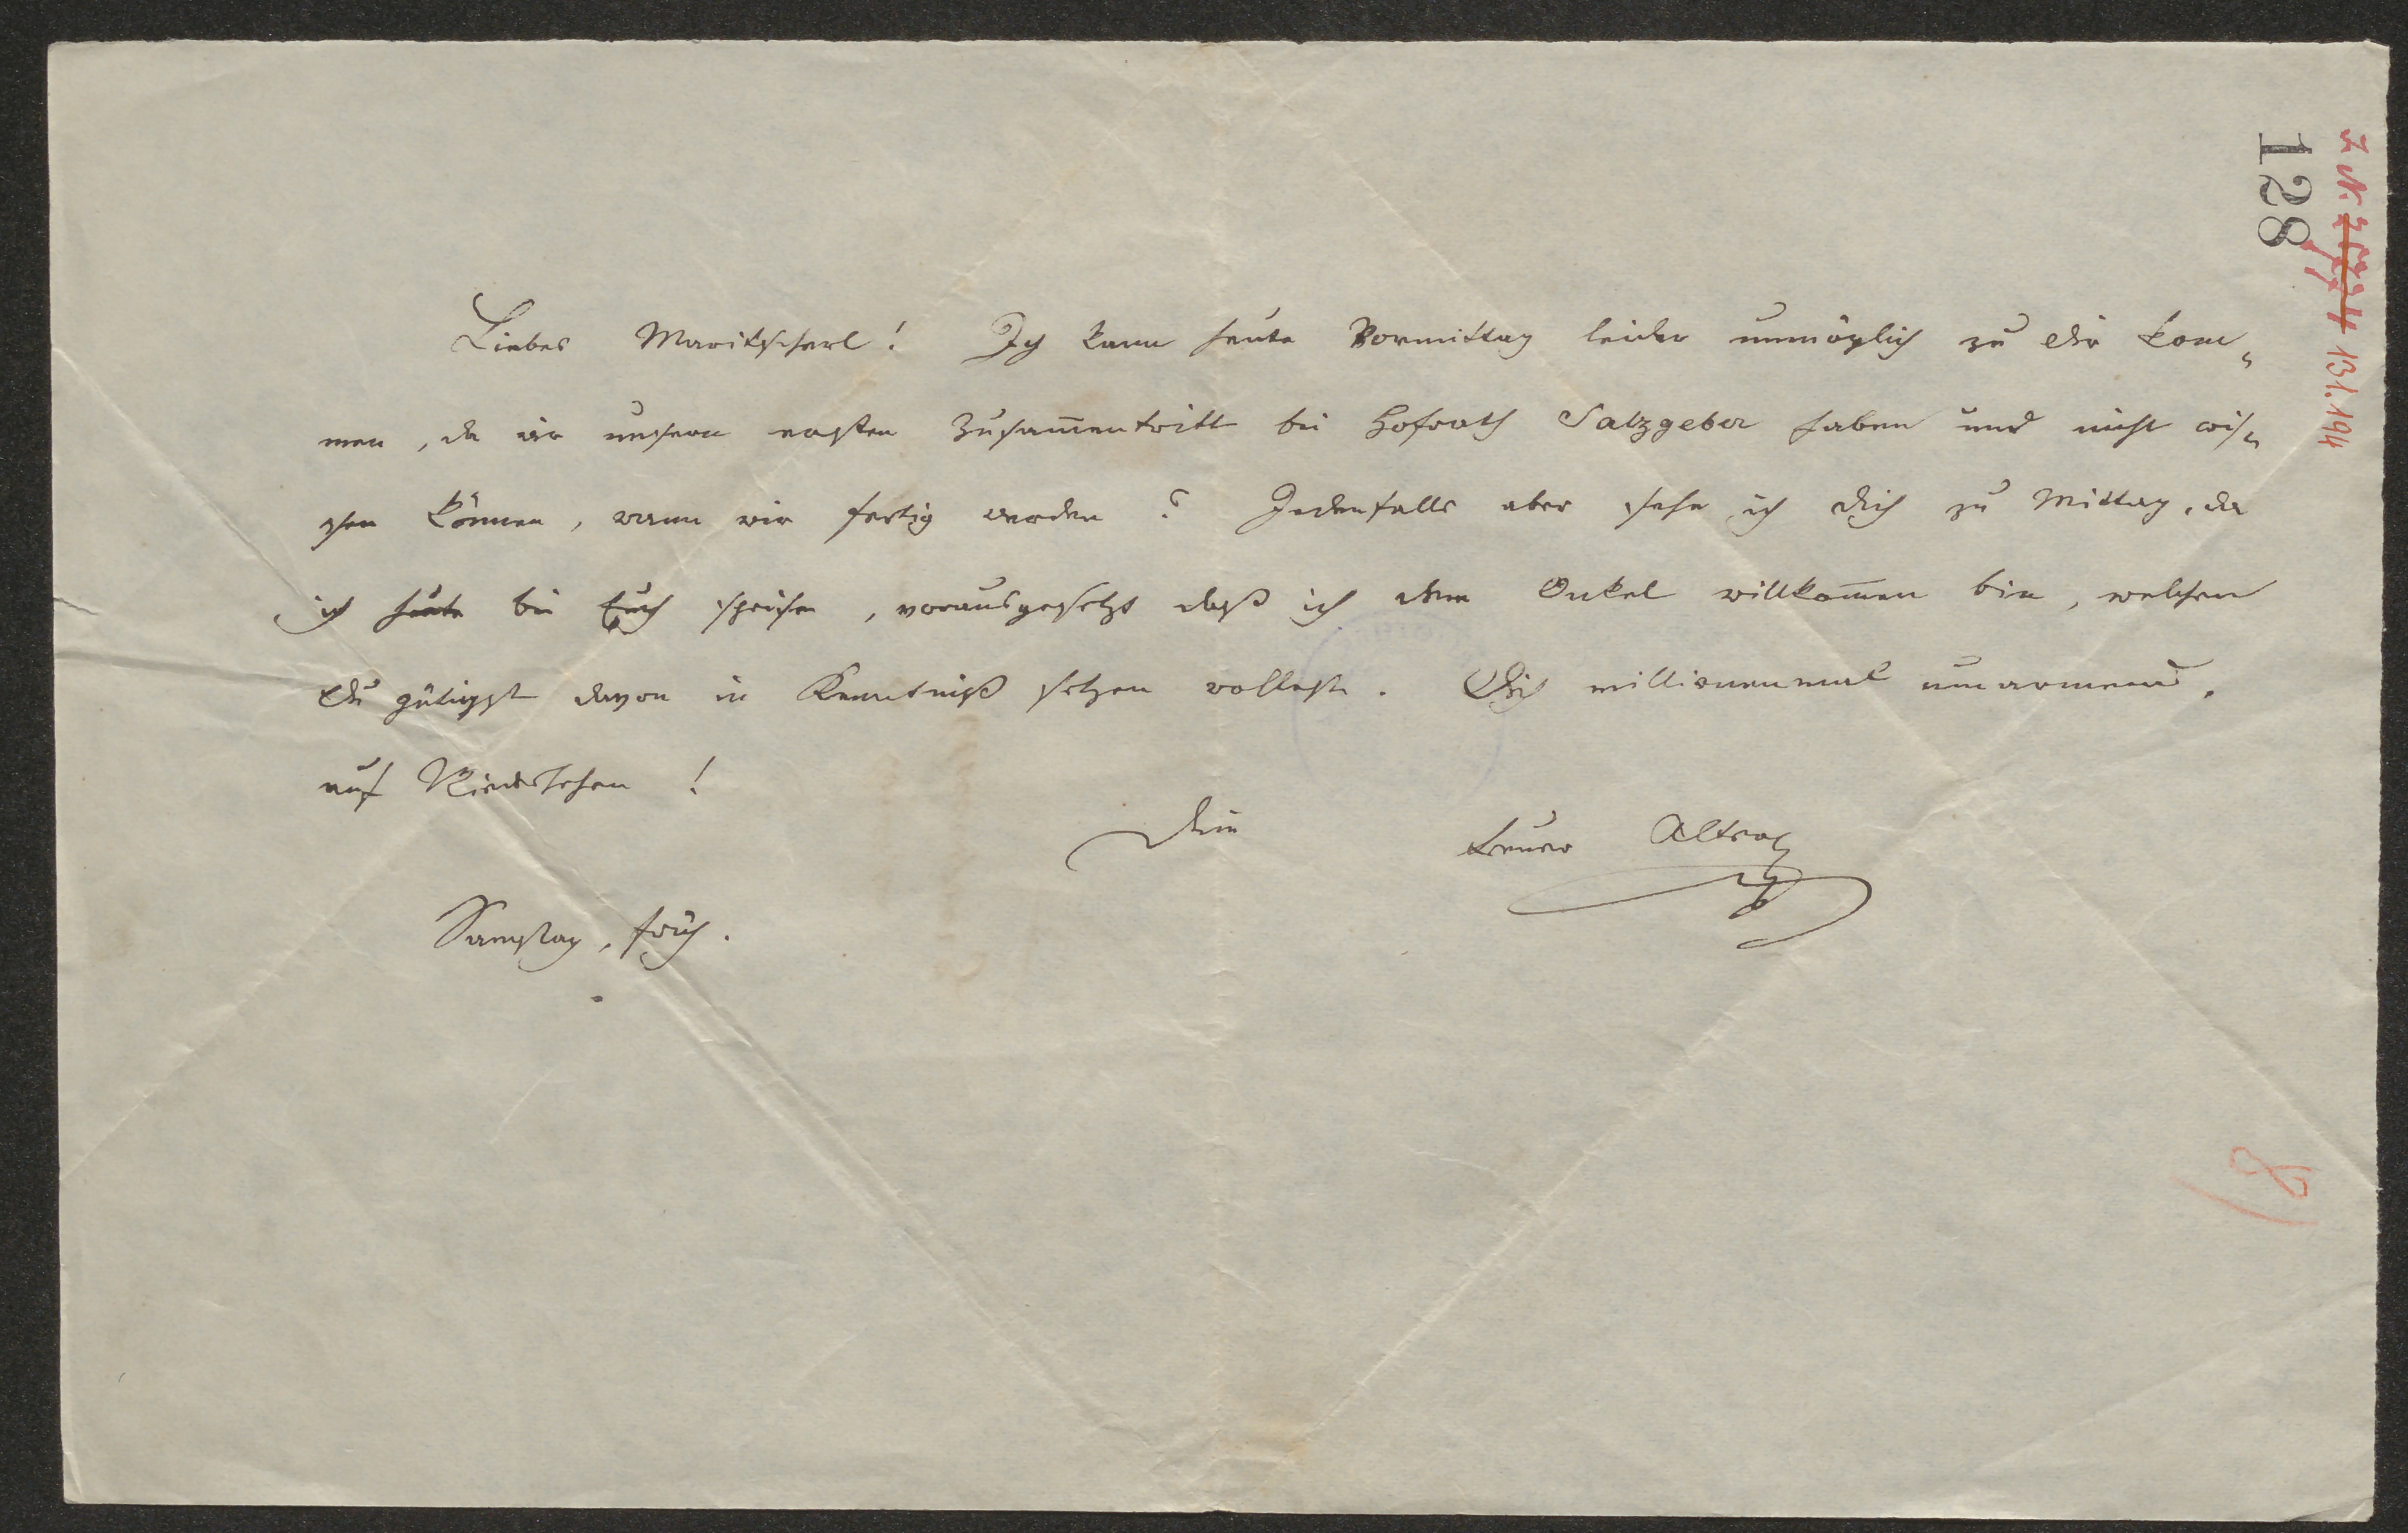 Liebes Maritscherl! Ich kann heute Vormittag leider unmöglich zu Dir kom„
men, da wir unsern ersten Zusam̅entritt bei Hofrath Salzgeber haben und nicht wis„
sen können, wann wir fertig werden? Jedenfalls aber sehe ich Dich zu Mittag, da
ich heute bei Euch speise, vorausgesetzt daß ich dem Onkel willkom̅en bin, welchen
Du gütigst davon in Kenntniß setzen wollest. Dich millionenmal umarmend,
auf Wiedersehen!
Dein treuer
Samstag, früh.
128
131.194
8)